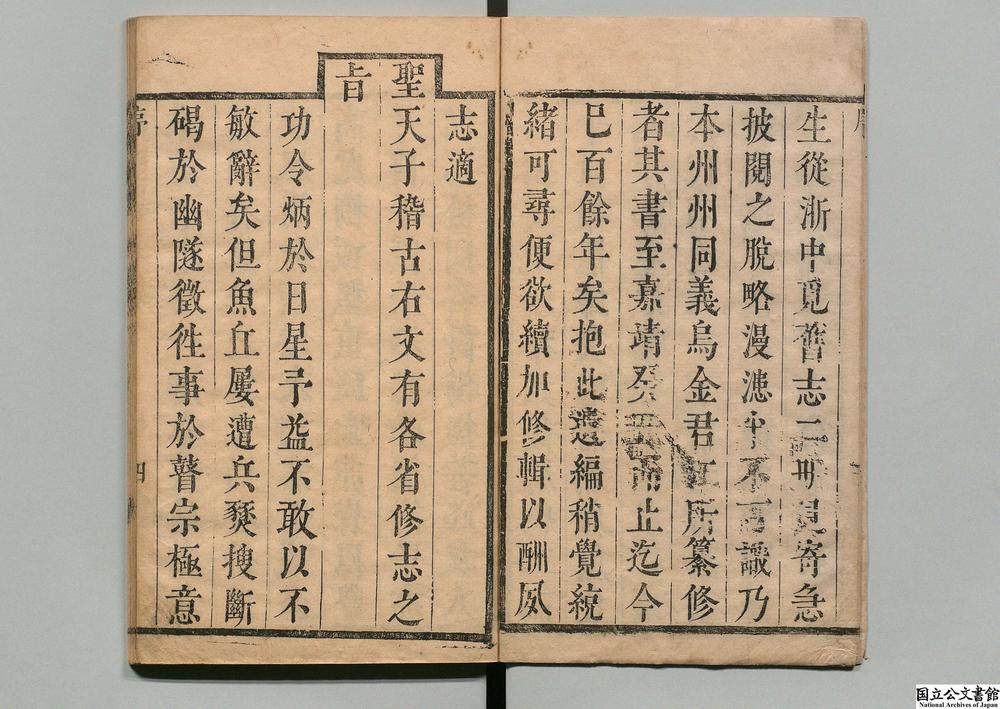 生從浙中覓舊志二冊見寄急
披閱之脫略漫漶不可識乃
本州州同義烏金君江所纂修
者其書至嘉靖癸而止迄今
已百餘年矣抱此遺編稍覺統
緒可尋便欲續加修輯以酬夙
志適
聖天子稽古右文有各省修志之
旨
功令炳於日星予益不敢以不
敏辭矣但魚丘屢遭兵燹搜斷
碣於幽隧徵徃事於瞽宗極意
序
四
国立公文書館
National Archives of Japan